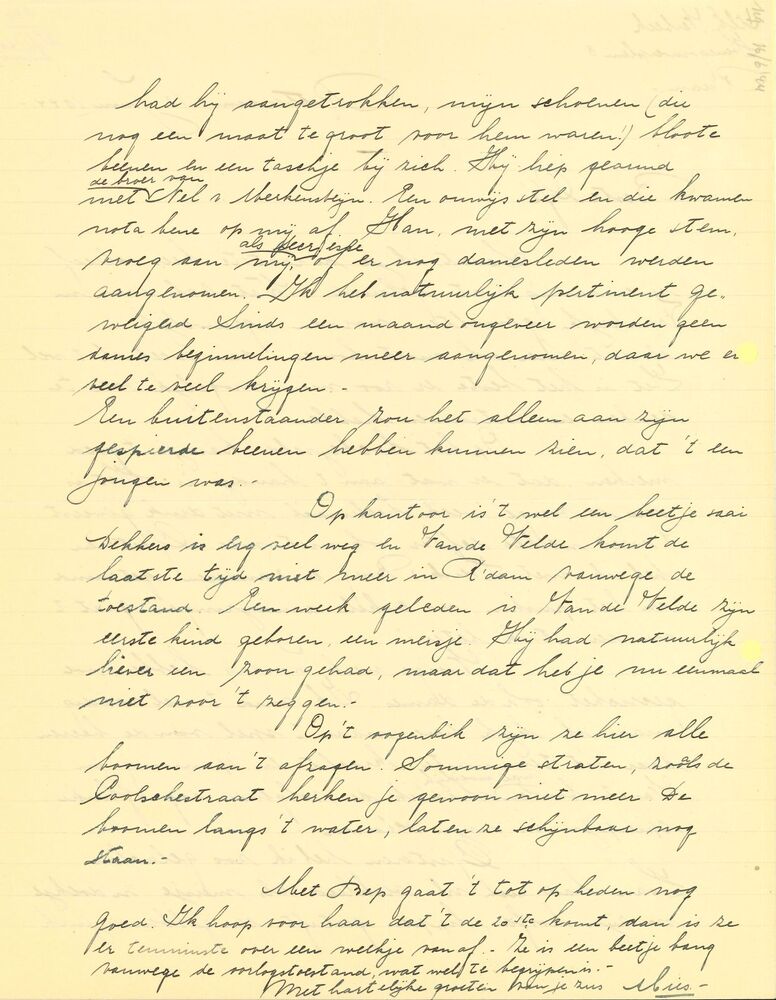 had hij aangetrokken, mijn schoenen (die
nog een maat te groot voor hem waren!) bloote
beenen en een taschje bij zich. Hij liep gearmd
de broer van
met Nel v Merkensteyn. Een onwijs stel en die kwamen
nota bene op mij af. Han, met zijn hooge stem,
als
vroeg aan mij, of er nog damesleden werden
aangenomen. Ik heb natuurlijk pertinent ge-
weigerd. Sinds een maand ongeveer worden geen
dames beginnelingen meer aangenomen, daar we er
veel te veel krijgen.-
Een buitenstaander zou het alleen aan zijn
gespierde beenen hebben kunnen zien, dat 't een
jongen was.-
Op kantoor is 't wel een beetje saai
Dekkers is erg veel weg en Van de Velde komt de
laatste tijd niet meer in A'dam vanwege de
toestand. Een week geleden is Van de Velde zijn
eerste kind geboren, een meisje. Hij had natuurlijk
liever een zoon gehad, maar dat heb je nu eenmaal
niet voor 't zeggen.-
Op 't oogenblik zijn ze hier alle
boomen aan 't afzagen. Sommige straten, zooals de
herken je gewoon niet meer De
boomen langs 't water, laten ze schijnbaar nog
staan.-
Met Bep gaat 't tot op heden nog
goed. Ik hoop voor haar dat 't de 20ste komt, dan is ze
er tenminste over een weekje van af.- Ze is een beetje bang
vanwege de oorlogstoestand, wat wel te begrijpen is.-
Met hartelijke groeten van je zus Mies-